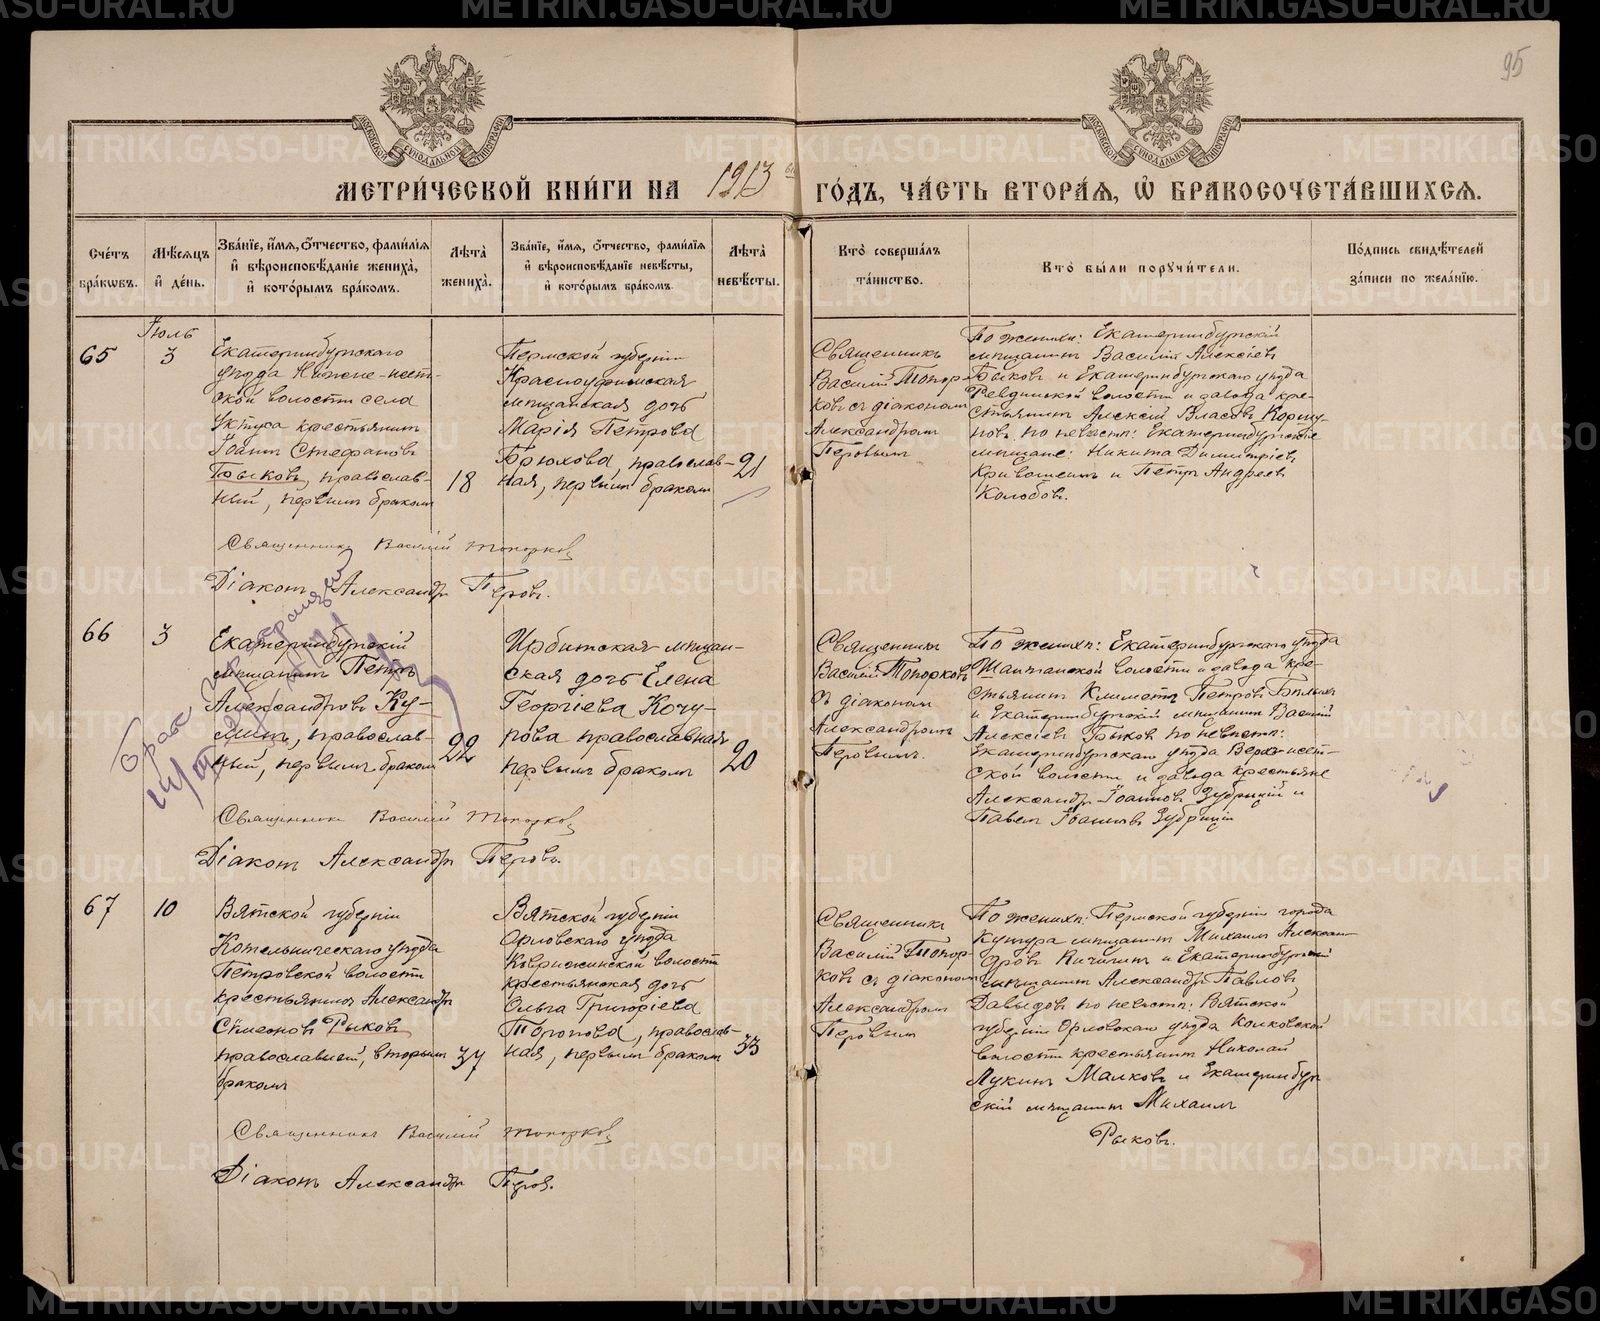 95
МЕТРИ́ЧЕСКОЙ КНИ́ГИ НА 1913 ГО́ДЪ, ЧА́СТЬ ВТОРА́Я, Ѡ БРАКОСОЧЕТА́ВШИХСЯ.
Сче́тъ бра́кѡвъ.
Мѣ́сяцъ и҆ де́нь.
Зва́нїе, и҆́мя, ѻ҆́тчество, фами́лїя и҆ вѣроисповѣ́данїе жениха̀, и҆ кото́рымъ бра́комъ.
Лѣ́та жениха̀.
Зва́нїе, и҆́мя, ѻ҆́тчество, фами́лїя и҆ вѣроисповѣ́данїе невѣ́сты, и҆ кото́рымъ бра́комъ.
Лѣ́та невѣ́сты.
Кто̀ соверша́лъ та́инство.
Кто̀ бы́ли порꙋчи́тели.
По́дпись свидѣ́телей за́писи по жела́нїю.
Іюль
65
3
Екатеринбургскаго
уѣзда Нижне-исет-
ской волости села
Уктуса крестьянинъ
Іоаннъ Стефановъ
Быковъ, православ-
ный, первымъ бракомъ
18
Пермской губерніи
Красноуфимская
мѣщанская дочь
Марія Петрова
Брюхова, православ-
ная, первымъ бракомъ
21
Священникъ
Василій Топор-
ковъ съ діакономъ
Александромъ
Перовымъ
По женихѣ: Екатеринбургскій
мѣщанинъ Василій Алексѣевъ
Быковъ и Екатеринбургскаго уѣзда
Ревдинской волости и завода кре-
стьянинъ Алексѣй Власовъ
по невѣстѣ: Екатеринбургскіе
мѣщане: Никита Димитріевъ
и Петръ Андреевъ
Колобовъ.
Священникъ Василій Топорковъ
Діаконъ Александръ Перовъ.
66
3
Екатеринбургскій
мѣщанинъ Петръ
Александровъ Ку-
минъ, православ-
ный, первымъ бракомъ
22
Ирбитская мѣщан-
ская дочь Елена
Георгіева Кочу-
рова православная
первымъ бракомъ
20
Священникъ
Василій Топорковъ
съ діакономъ
Александромъ
Перовымъ.
По женихѣ: Екатеринбургскаго уѣзда
Шайтанской волости и завода кре-
стьянинъ Климентъ Петровъ
и Екатеринбургскій мѣщанинъ Василій
Алексѣевъ Быковъ по невѣстѣ:
Екатеринбургскаго уѣзда Верх-исет-
ской волости и завода крестьяне
Александръ Іоанновъ Зубрицкій и
Павелъ Іоанновъ Зубрицкій
Бракъ
Священникъ Василій Топорковъ
Діаконъ Александръ Перовъ.
67
10
Вятской губерніи
Котельническаго уѣзда
Петровской волости
крестьянинъ Александръ
Симеоновъ Рыковъ
православный, вторымъ
бракомъ
37
Вятской губерніи
Орловскаго уѣзда
волости
крестьянская дочь
Ольга Григоріева
Торопова, православ-
ная, первымъ бракомъ
33
Священникъ
Василій Топор-
ковъ съ діакономъ
Александромъ
Перовымъ
По женихѣ: Пермской губерніи города
Кунгура мѣщанинъ Михаилъ Алексан-
дровъ Кичигинъ и Екатеринбургскій
мѣщанинъ Александръ Павловъ
Давыдовъ по невѣстѣ: Вятской
губерніи Орловскаго уѣзда
волости крестьянинъ Николай
Лукинъ Малковъ и Екатеринбург
скій мѣщанинъ Михаилъ
Рыковъ.
Священникъ Василій Топорковъ
Діаконъ Александръ Перовъ.
METRIKI.GASO-URAL.RU